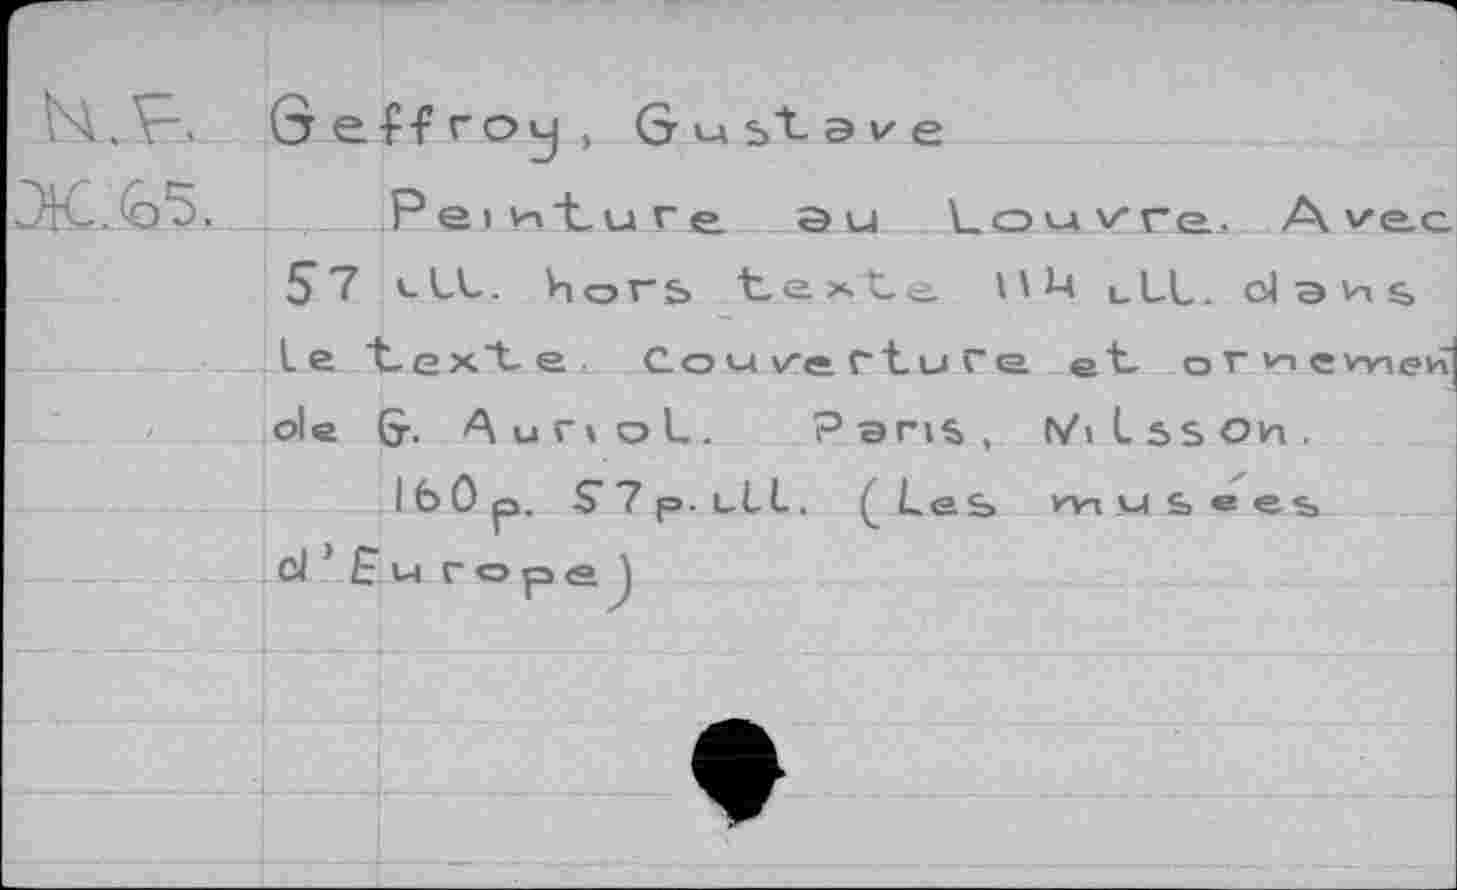 N.F. Geffroy, Gustave
Ж.65. Peinture au Louvre. Avec
57 ill. hors texte 114 ill. dans
le texte. Couverture et ornement
de G. Auriol. Paris, Nilsson.
160p. 57p.ill. (Les musées
d'Europe)